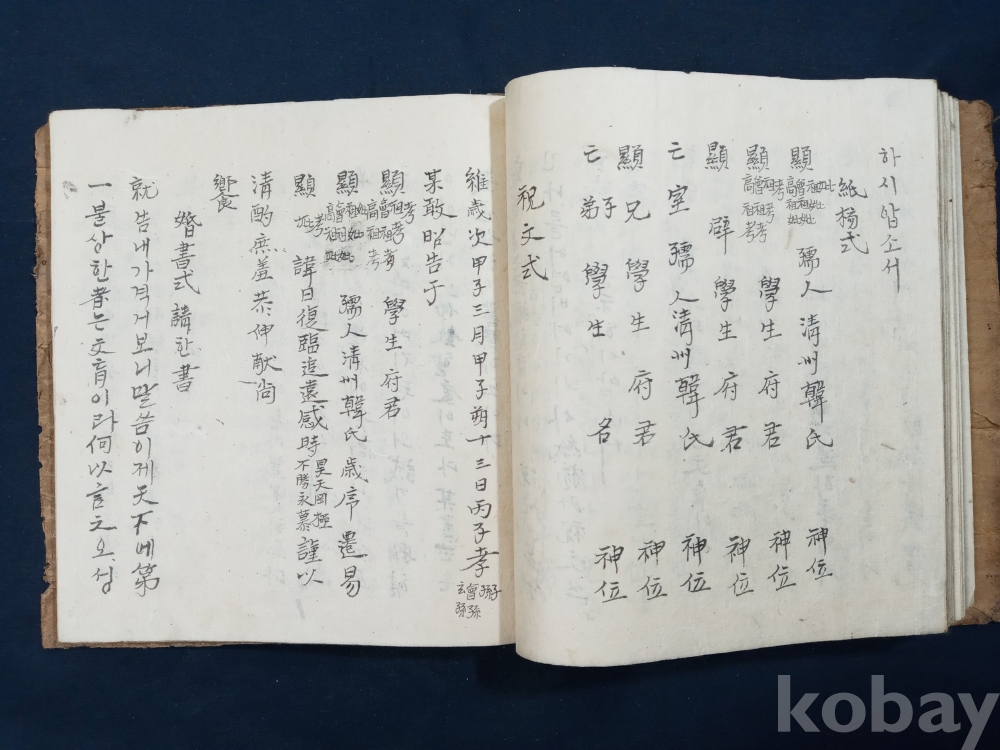 하시압소서
紙榜式
顯 高祖妣 曾祖妣 祖妣 妣 孺人淸州韓氏 神位
顯 高祖考 曾祖考 祖考 考 學生府君 神位
顯 辟 學生府君 神位
亡室 孺人淸州韓氏 神位
顯兄 學生府君 神位
亡 弟 子 學生 名 神位
祝文式
維歲次甲子三月甲子朔十三日丙子孝 玄孫 曾孫 孫 子
某敢昭告于
顯 高祖考 曾祖考 祖考 考 學生府君
顯 高祖妣 曾祖妣 祖妣 妣 孺人淸州韓氏 歲序遷易
顯 妣 考 諱日復臨追遠感時 不勝永慕 昊天罔極 謹以
淸酌庶羞恭伸献尙
饗
婚書式 講한書
就늬내가격거보니말씀이제天下에第
一불상한者는文盲이라何以言之오성
kobay